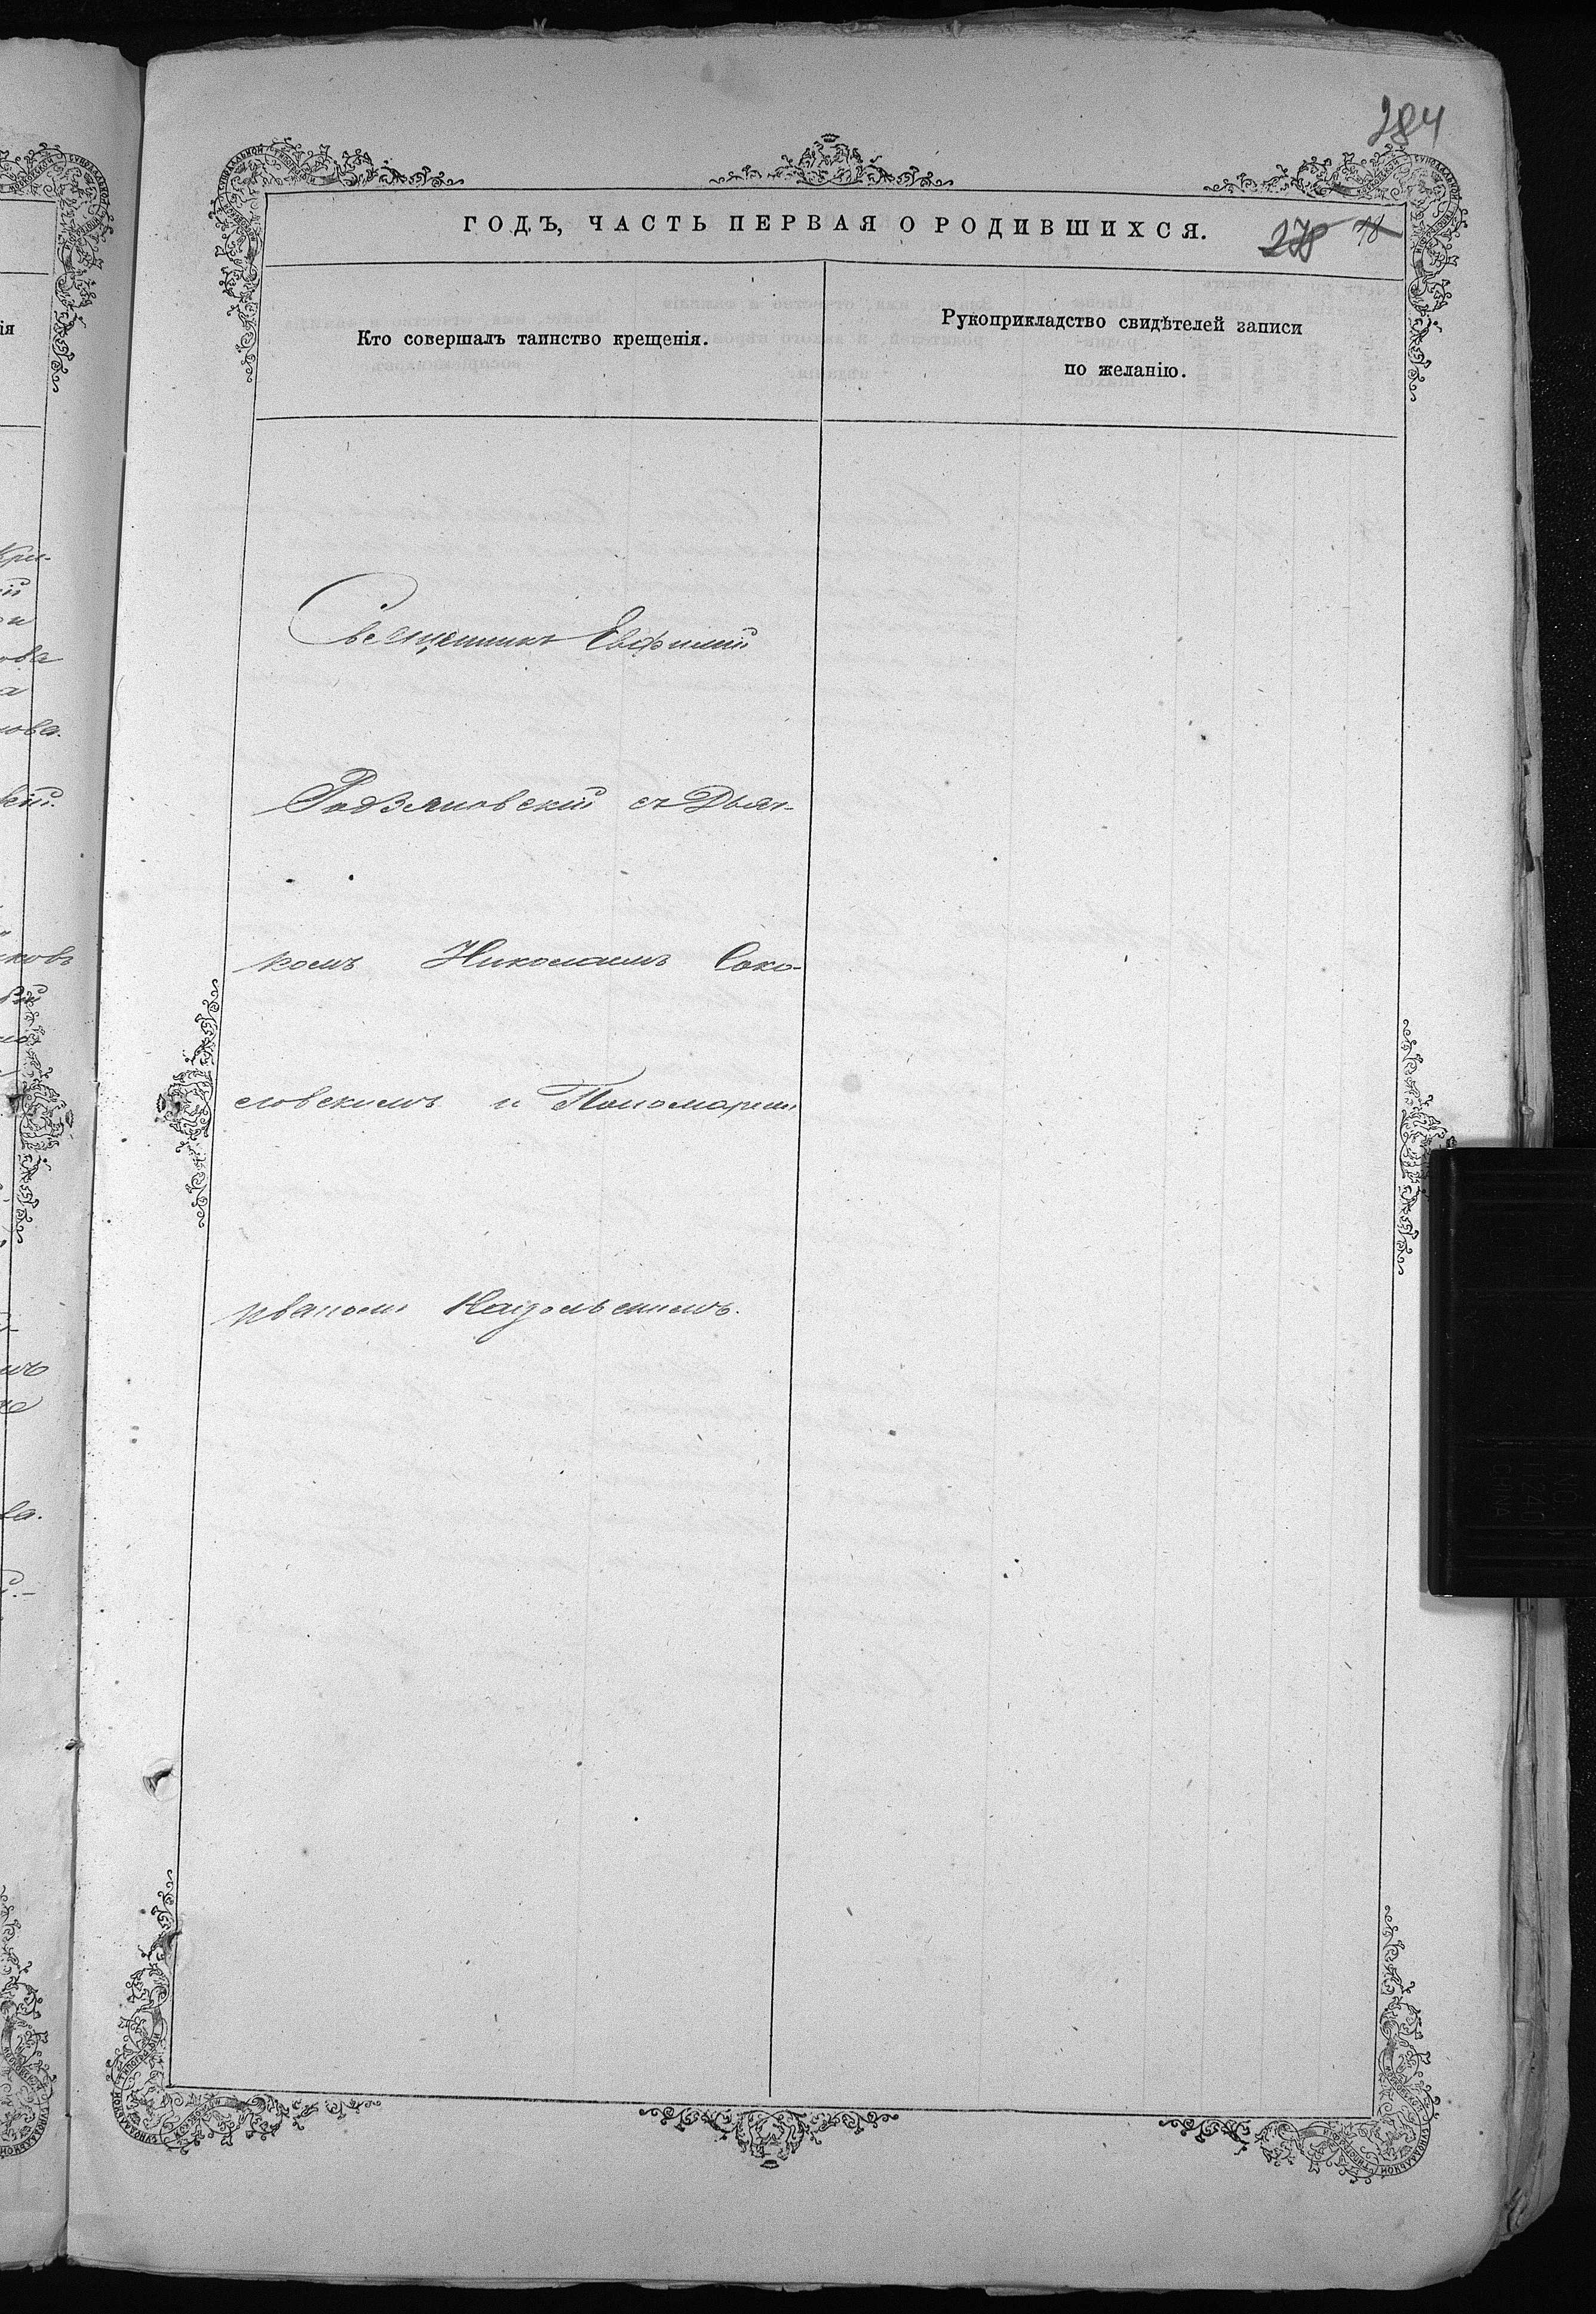 284
ГОДЪ, ЧАСТЬ ПЕРВАЯ О РОДИВШИХСЯ.
278 18
Кто совершалъ таинство крещенія.
Рукоприкладство свидѣтелей записи
по желанію.
Священникъ Евфимій
Радзяновскій съ Дьяч-
комъ Николаемъ Соко-
ловскимъ и Пономаремъ
Иваномъ Надольскимъ.